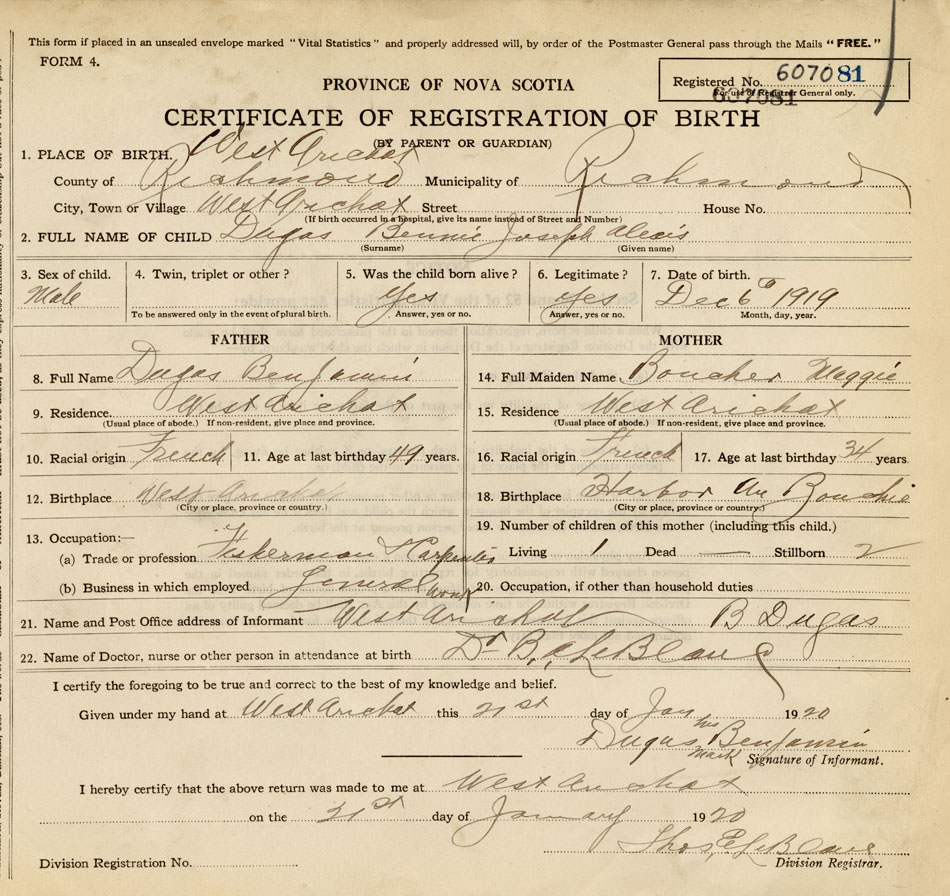 This form if placed in an unsealed envelope marked "Vital Statistics" and properly addressed will, by order of the Postmaster General pass through the Mails "FREE."
FORM 4.
Registered No. 607081
For use of Registrar General only.
607081
PROVINCE OF NOVA SCOTIA
CERTIFICATE OF REGISTRATION OF BIRTH
(BY PARENT OR GUARDIAN)
1. PLACE OF BIRTH. West Arichat
County of Richmond Municipality of Richmond
City, Town or Village West Arichat Street House No.
(If birth occurred in a hospital, give its name instead of Street and Number)
2. FULL NAME OF CHILD Dugas Bennie Joseph Alexis
(Surname) (Given name)
3. Sex of child. 4. Twin, triplet or other? 5. Was the child born alive? 6. Legitimate? 7. Date of birth.
Male Yes Yes Dec 6th 1919
To be answered only in the event of plural birth. Answer, yes or no. Answer, yes or no. Month, day, year.
FATHER MOTHER
8. Full Name Dugas Benjamin 14. Full Maiden Name Boucher Maggie
9. Residence. West Arichat 15. Residence West Arichat
(Usual place of abode.) If non-resident, give place and province. (Usual place of abode.) If non-resident, give place and province.
10. Racial origin French 11. Age at last birthday 49 years. 16. Racial origin French 17. Age at last birthday 34 years.
12. Birthplace West Arichat 18. Birthplace Harbor Au Bouchie
(City or place, province or country.) (City or place, province or country.)
13. Occupation:— 19. Number of children of this mother (including this child.)
(a) Trade or profession Fisherman & Carpenter Living 1 Dead — Stillborn 2
(b) Business in which employed General Work 20. Occupation, if other than household duties
21. Name and Post Office address of Informant West Arichat B Dugas
22. Name of Doctor, nurse or other person in attendance at birth Dr B. A. LeBlanc
I certify the foregoing to be true and correct to the best of my knowledge and belief.
Given under my hand at West Arichat this 21st day of Jan 1920
Dugas his mark Benjamin
Signature of Informant.
I hereby certify that the above return was made to me at West Arichat
on the 21st day of January 1920
Thos. E. LeBlanc
Division Registration No. Division Registrar.